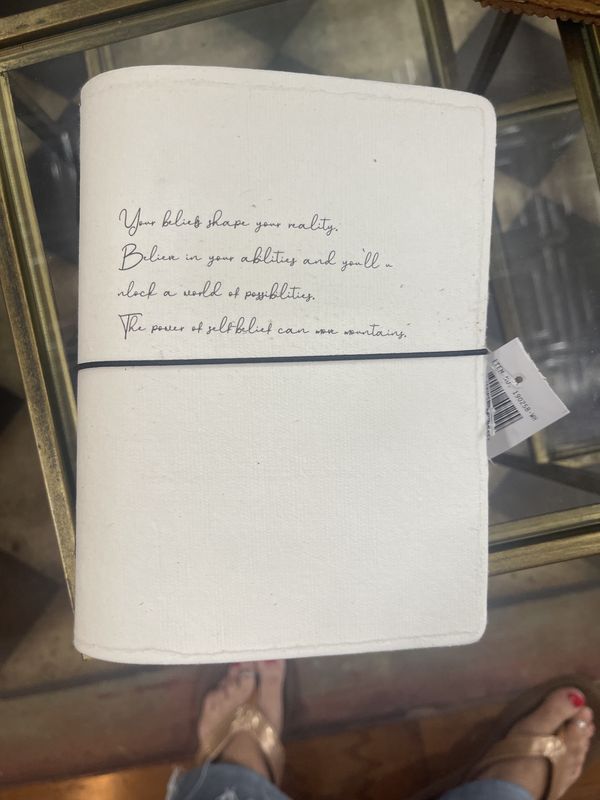 Your beliefs shape your reality.
Believe in your abilities and you'll u
nlock a world of possiblities.
The power of self-belief can move mountains.
ITEM 190258-WH